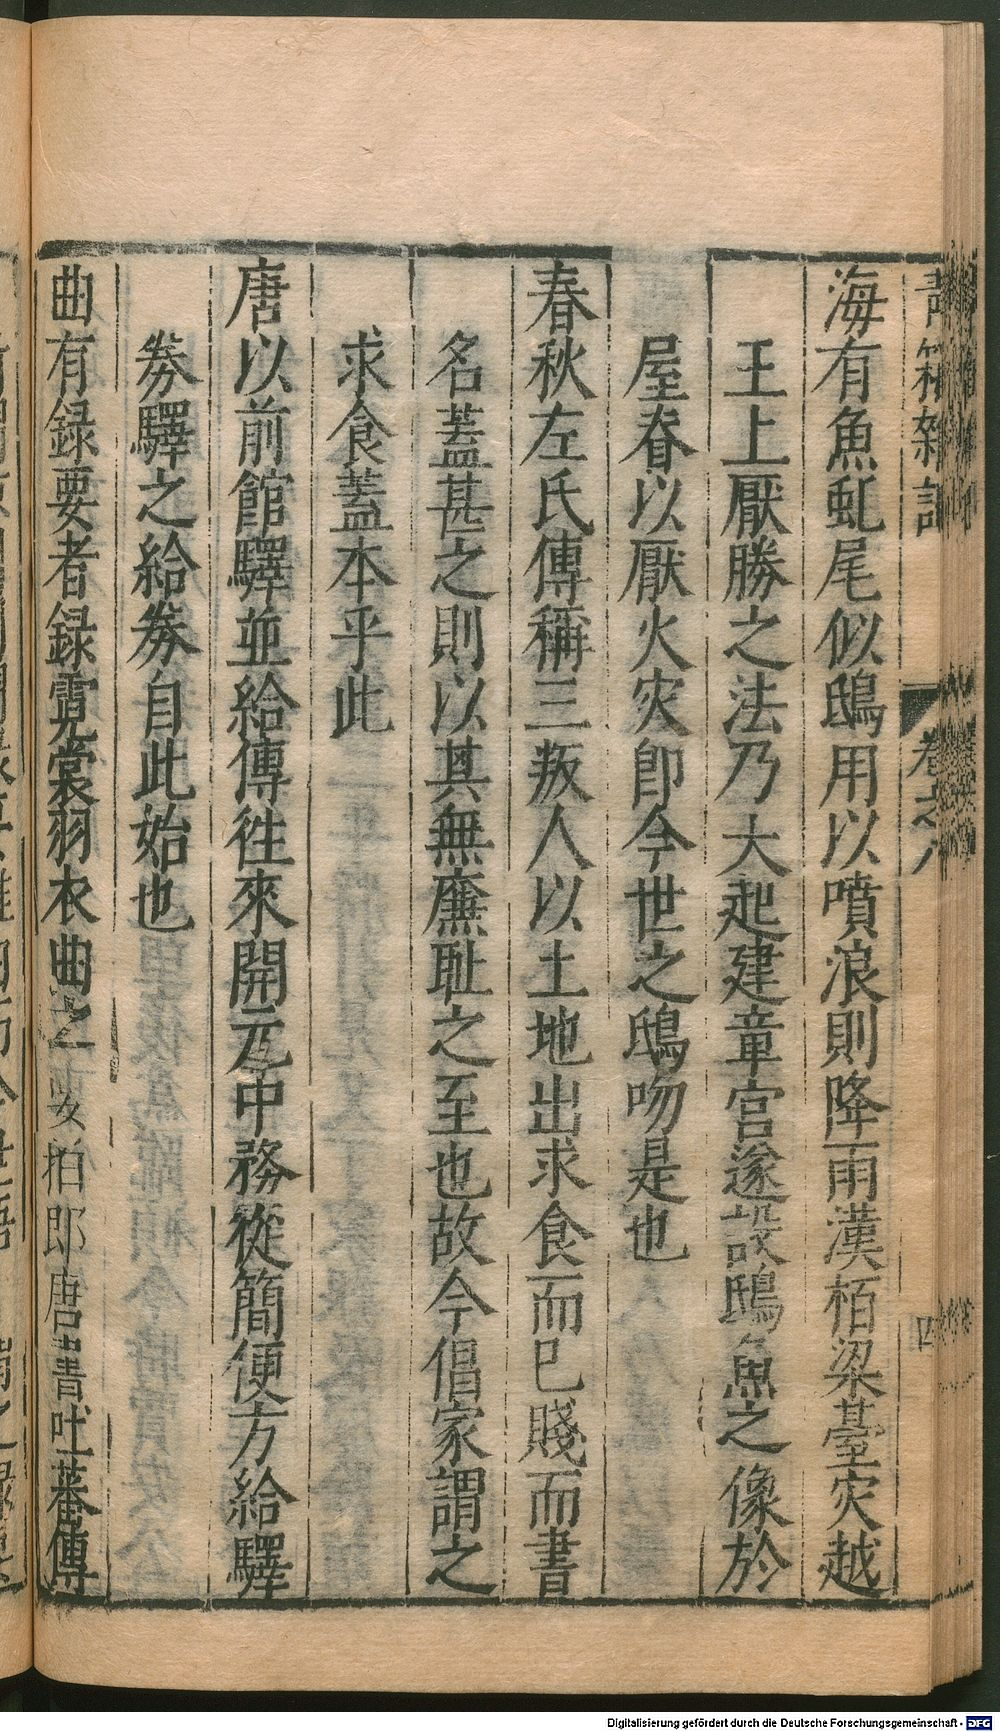 青箱雜記 卷之八 四
海有魚虬尾似鴟用以噴浪則降雨漢栢梁臺灾越
王上厭勝之法乃大起建章宫遂設鴟魚之像於
屋脊以厭火灾即今世之鴟吻是也
春秋左氏傳稱三叛人以土地出求食而已賤而書
名蓋甚之則以其無亷耻之至也故今倡家謂之
求食蓋本乎此
唐以前館驛並給傳徃來開元中務從簡便方給驛
劵驛之給劵自此始也
曲有録要者録霓裳羽衣曲之要拍即唐書吐蕃傳
Digitalisierung gefördert durch die Deutsche Forschungsgemeinschaft - DFG